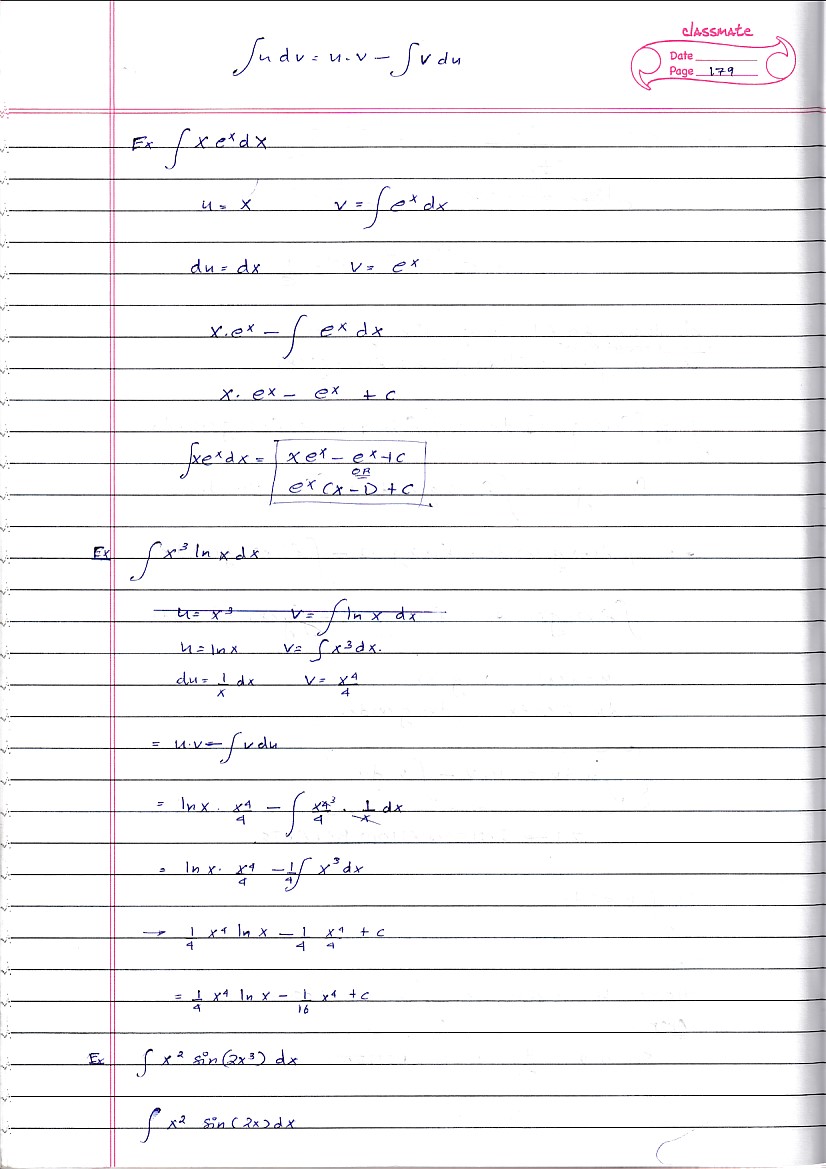 classmate
Date
Page 179
∫u dv = u·v − ∫v du
Ex ∫ x eˣ dx
u = x v = ∫ eˣ dx
du = dx v = eˣ
x·eˣ − ∫ eˣ dx
x· eˣ − eˣ + c
∫xeˣdx = xeˣ − eˣ + c
OR
eˣ (x−1) + c
Ex ∫ x³ ln x dx
u = x³ v = ∫ ln x dx
u = ln x v = ∫ x³ dx.
du = 1/x dx v = x⁴/4
= u·v − ∫ v du
= ln x · x⁴/4 − ∫ x⁴³/4 · 1/x dx
= ln x · x⁴/4 − 1/4 ∫ x³ dx
→ 1/4 x⁴ ln x − 1/4 x⁴/4 + c
= 1/4 x⁴ ln x − 1/16 x⁴ + c
Ex ∫ x² sin(2x³) dx
∫ x² sin(2x) dx